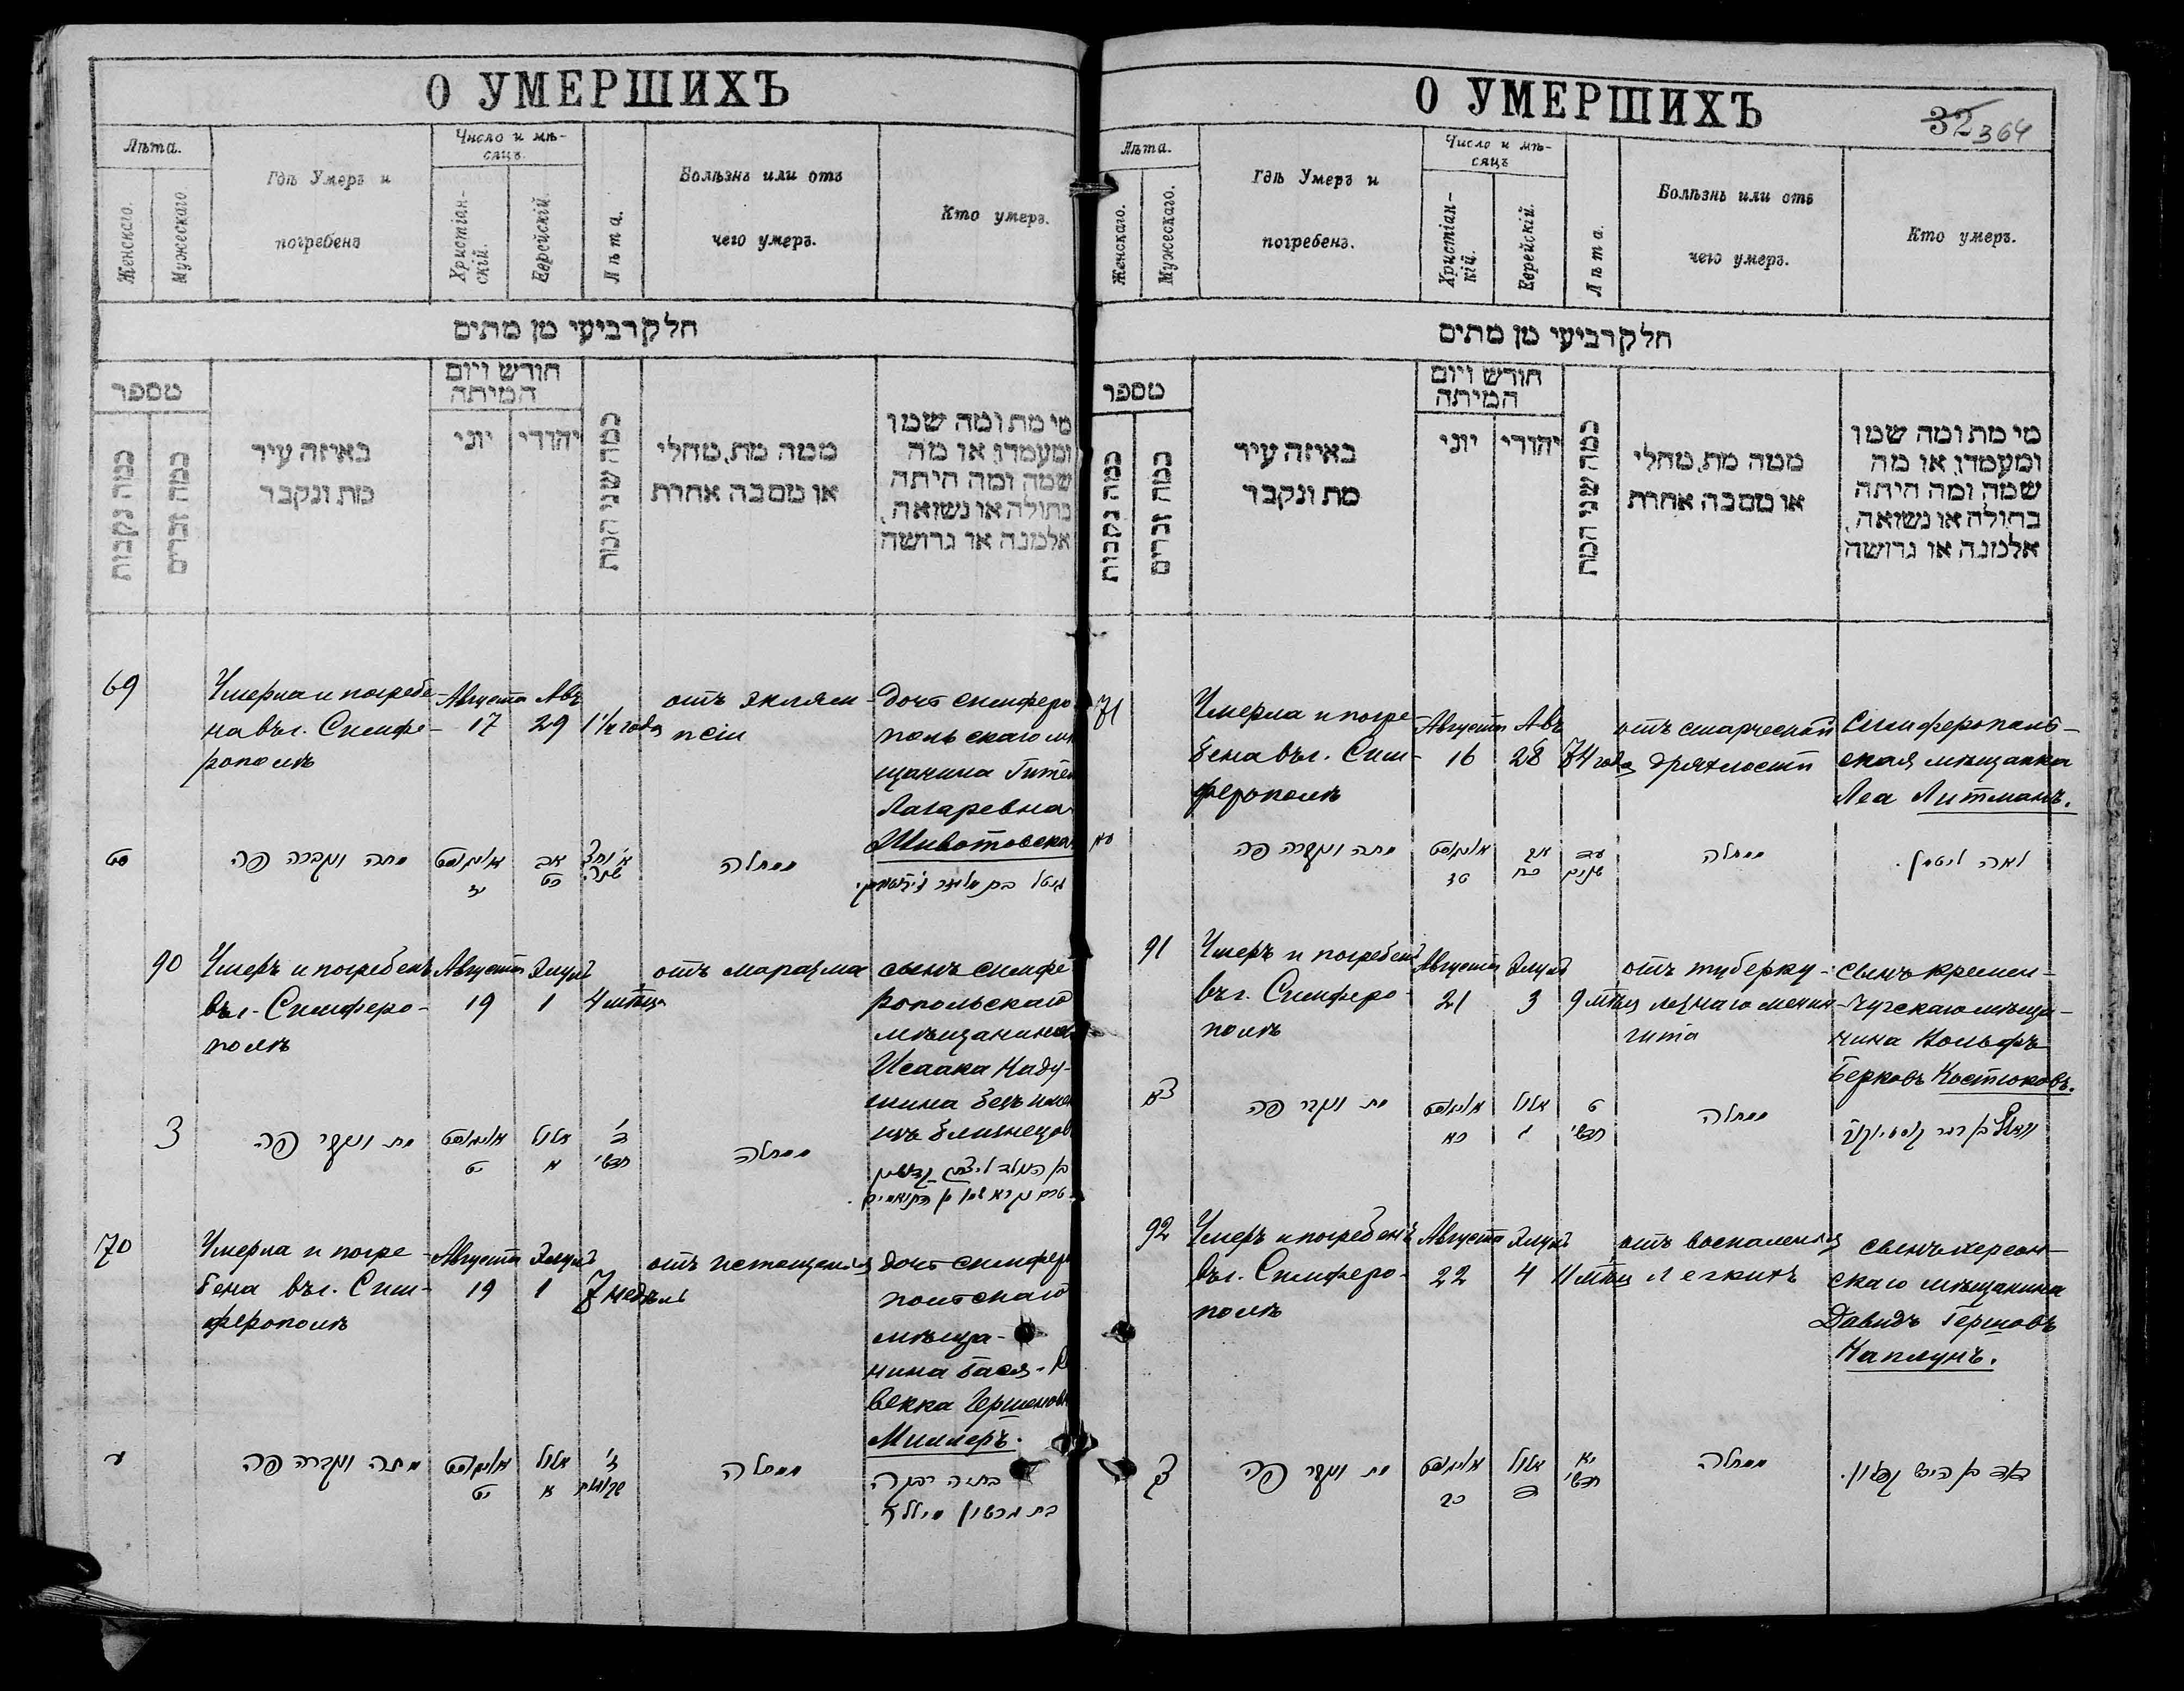 О УМЕРШИХЪ
Лѣта.
Женскаго.
Мужескаго
Гдѣ Умеръ и
погребенъ
Число и мѣ-
сяцъ.
Христіан-
скій.
Еврейскій.
Лѣта.
Болѣзнь или отъ
чего умеръ.
Кто умеръ.
חלק רביעי מן מתים
מספר
כמה נקבות
כמה זכרים
באיזה עיר
מת ונקבר
חודש ויום
המיתה
יוני
יהודי
כמה שני המת
ממה מת, מחלי
או מסבה אחרת
מי מת ומה שמו
ומעמדו, או מה
שמה ומה היתה
בתולה או נשואה,
אלמנה או גרושה
69
Умерла и погребе-
на въ г. Симфе-
рополѣ
Августа
17
Авъ
29
1½ года
отъ эклям-
псіи
дочь симферо
польскаго мѣ
щанина Гитель
Лазаревна
Животовская
סט
מתה ונקברה פה
אויגוסט
יז
אב
כט
מחלה
90
Умеръ и погребенъ
въ г. Симферо-
полѣ
Августа
19
Элулъ
1
4 мѣсяца
отъ маразма
сынъ симфе
ропольскаго
мѣщанина
Исаака Каду-
шина безъ имен
изъ близнецов
צ
מת ונקבר פה
אויגוסט
יט
אלול
א
ד'
חדשי'
מחלה
70
Умерла и погре-
бена въ г. Сим-
ферополѣ
Августа
19
Элулъ
1
7 недѣль
отъ истощенія
дочь симферо
польскаго
мѣща-
нина Бася-Ри
векка Гершенов
Миллеръ.
ע
מתה ונקברה פה
אויגוסט
יט
אלול
א
ז'
שבועות
מחלה
בתיה רבקה
בת גרשון מיללער
О УМЕРШИХЪ
32 364
Лѣта.
Женскаго.
Мужескаго.
Гдѣ Умеръ и
погребенъ.
Число и мѣ-
сяцъ
Христіан-
кій.
Еврейскій.
Лѣта.
Болѣзнь или отъ
чего умеръ.
Кто умеръ.
חלק רביעי מן מתים
מספר
כמה נקבות
כמה זכרים
באיזה עיר
מת ונקבר
חודש ויום
המיתה
יוני
יהודי
כמה שני המת
ממה מת, מחלי
או מסבה אחרת
מי מת ומה שמו
ומעמדו, או מה
שמה ומה היתה
בתולה או נשואה,
אלמנה או גרושה
71
Умерла и погре-
бена въ г. Сим-
ферополѣ
Августа
16
Авъ
28
74 года
отъ старческой
дряхлости
Симферополь-
ская мѣщанка
Леа Литманъ.
עא
מתה ונקברה פה
אויגוסט
טז
אב
כח
עד
שנים
מחלה
לאה ליטמן.
91
Умеръ и погребенъ
въ г. Симферо-
полѣ
Августа
21
Элулъ
3
9 мѣсяц
отъ туберку-
лезнаго менин-
гита
сынъ кремен-
чугскаго мѣща-
нина Вольфъ
Берковъ Костюковъ.
צא
מת ונקבר פה
אויגוסט
כא
אלול
ג
ט
חדשי'
מחלה
92
Умеръ и погребенъ
въ г. Симферо-
полѣ
Августа
22
Элулъ
4
11 мѣсяц
отъ воспаленія
легкихъ
сынъ херсон-
скаго мѣщанина
Давидъ Гершовъ
Каплунъ.
צב
מת ונקבר פה
אויגוסט
כב
אלול
ד
יא
חדשי'
מחלה
דוד בן הירש קפלון.